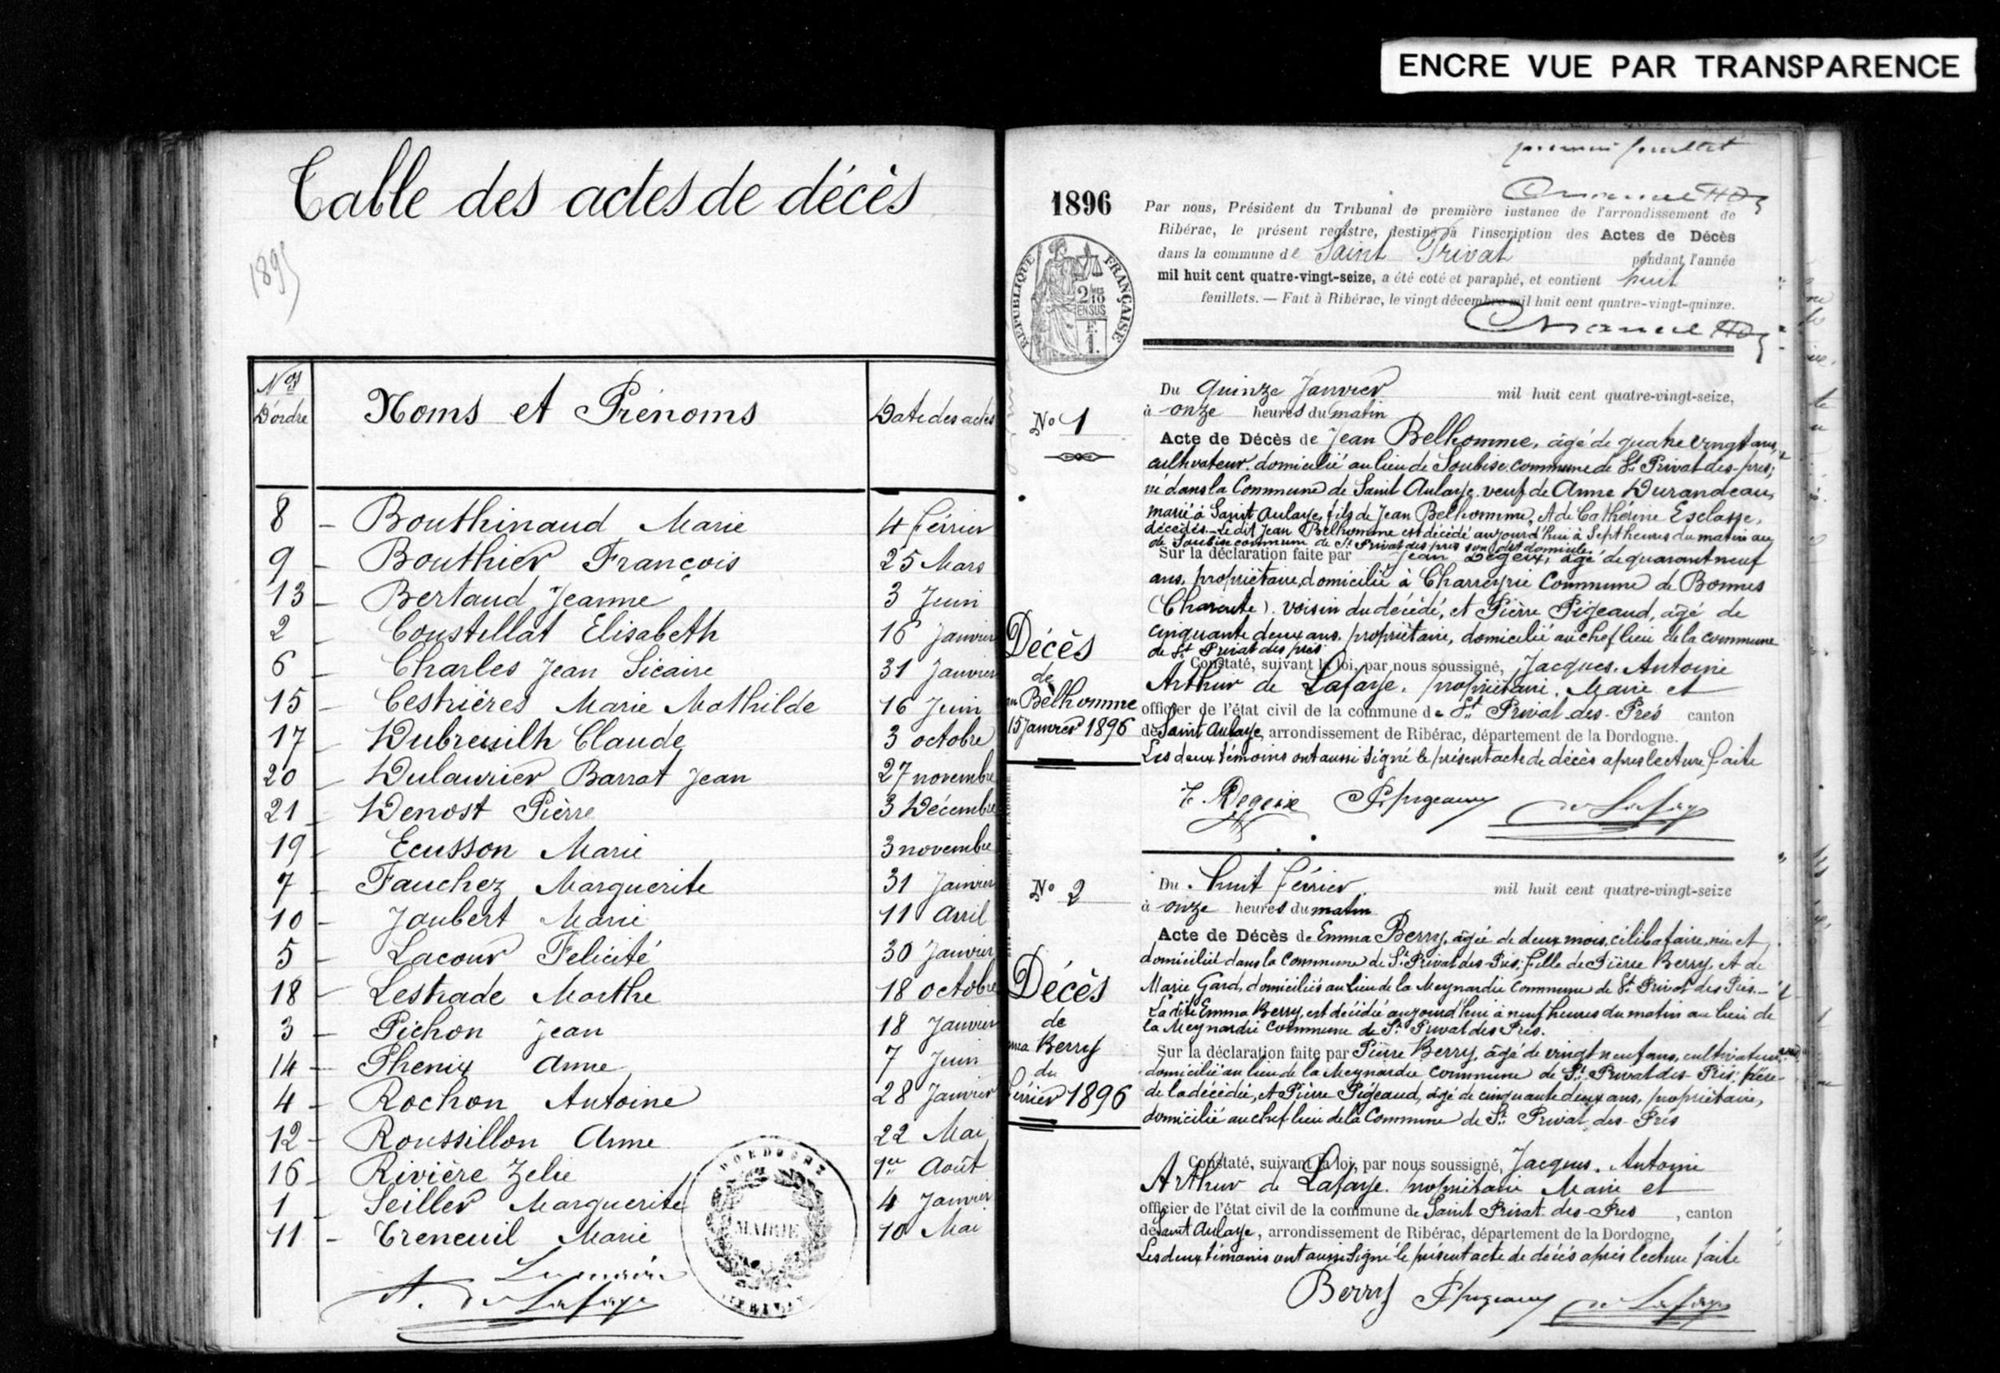 ENCRE VUE PAR TRANSPARENCE
Table des actes de décès
1895
Nos D'ordre
Noms et Prénoms
Date des actes
8 - Bouthinaud Marie 4 février
9 - Bouthier François 25 Mars
13 - Bertaud Jeanne 3 Juin
2 - Coustillat Elisabeth 16 Janvier
6 - Charles Jean Sicaire 31 Janvier
15 - Cestrières Marie Mathilde 16 Juin
17 - Dubreuilh Claude 3 octobre
20 - Dulaurier Barrat Jean 27 novembre
21 - Denost Pierre 3 Décembre
19 - Ecusson Marie 3 novembre
7 - Fauchez Marguerite 31 Janvier
10 - Joubert Marie 11 avril
5 - Lacour Felicité 30 Janvier
18 - Lestrade Marthe 18 octobre
3 - Pichon Jean 18 Janvier
14 - Phenix Anne 7 Juin
4 - Rochon Antoine 28 Janvier
12 - Roussillon Anne 22 Mai
16 - Rivière Zelie 1er Août
1 - Seiller Marguerite 4 Janvier
11 - Treneuil Marie 10 Mai
MAIRIE
Le maire
A. de Lafaye
premier feuillet
1896
Par nous, Président du Tribunal de première instance de l'arrondissement de
Ribérac, le présent registre, destiné à l'inscription des Actes de Décès
dans la commune de Saint Privat pendant l'année
mil huit cent quatre-vingt-seize, a été coté et paraphé, et contient huit
feuillets. — Fait à Ribérac, le vingt décembre mil huit cent quatre-vingt-quinze.
RÉPUBLIQUE FRANÇAISE
No 1
Du quinze Janvier mil huit cent quatre-vingt-seize,
à onze heures du matin
Acte de Décès de Jean Belhomme, âgé de quatre vingt ans,
cultivateur domicilié au lieu de Soubise commune de St Privat des-prés;
né dans la Commune de Saint Aulaye veuf de Anne Durandeau,
marié à Saint Aulaye, fils de Jean Belhomme, et de Cathérine Esclasse,
décédés. Le dit Jean Belhomme est décédé aujourd'hui à Sept heures du matin au
de Soubise commune de St Privat des prés son dit domicile
Sur la déclaration faite par Jean Degeix, âgé de quarant neuf
ans, propriétaire, domicilié à Charreyrie Commune de Bonnes
(Charente). voisin du décédé, et Pierre Pigeaud, âgé de
cinquante deux ans. propriétaire, domicilié au chef lieu de la commune
de St Privat des prés
Constaté, suivant la loi, par nous soussigné, Jacques. Antoine
Arthur de Lafaye. propriétaire. Maire et
officier de l'état civil de la commune de St Privat-des-Prés canton
de Saint Aulaye, arrondissement de Ribérac, département de la Dordogne.
Les deux témoins ont aussi signé le présent acte de décès apres lecture faite
Décès
de
Belhomme
15 Janvier 1896
J. Degeix P. Pigeaud de Lafaye
No 2
Du huit février mil huit cent quatre-vingt-seize
à onze heures du matin
Acte de Décès de Emma Berry, âgée de deux mois, célibataire, née et
domiciliée dans la Commune de St Privat des Prés, fille de Pierre Berry, et de
Marie Gard, domiciliés au lieu de la Meynardie Commune de St Privat des Prés.—
La dite Emma Berry, est décédée aujourd'hui à neuf heures du matin au lieu de
la Meynardie Commune de St Privat des Prés.
Sur la déclaration faite par Pierre Berry, âgé de vingt neuf ans, cultivateur
domicilié au lieu de la Meynardie Commune de St Privat des Prés; père
de la décédée, et Pierre Pigeaud, âgé de cinquante deux ans, propriétaire,
domicilié au chef lieu de la Commune de St Privat des Prés
Constaté, suivant la loi, par nous soussigné, Jacques. Antoine
Arthur de Lafaye. propriétaire Maire et
officier de l'état civil de la commune de Saint Privat-des-Prés, canton
de Saint Aulaye, arrondissement de Ribérac, département de la Dordogne.
Les deux témoins ont aussi signé le présent acte de décès après lecture faite
Décès
de
Berry
du
février 1896
Berry P. Pigeaud de Lafaye